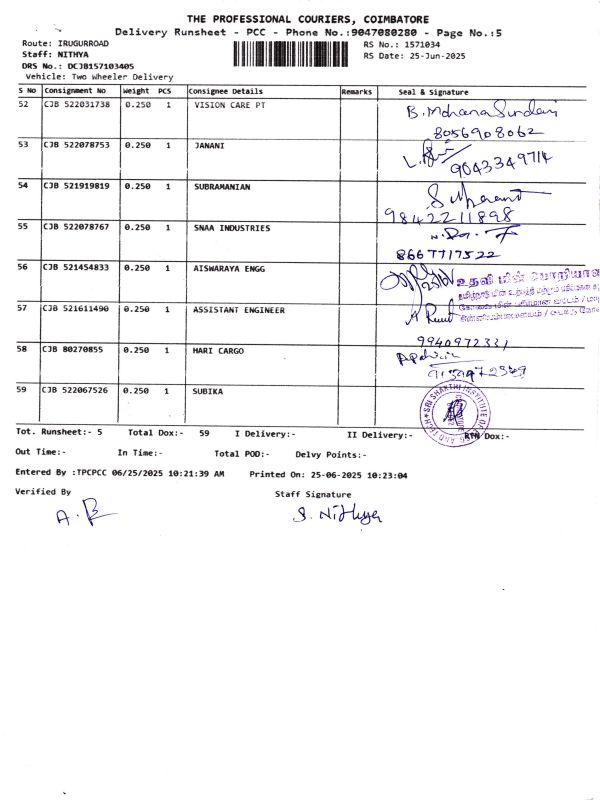 THE PROFESSIONAL COURIERS, COIMBATORE
Delivery Runsheet - PCC - Phone No.:9047080280 - Page No.:5
Route: IRUGURROAD
RS No.: 1571034
Staff: NITHYA
RS Date: 25-Jun-2025
DRS No.: DCJB157103405
Vehicle: Two Wheeler Delivery
S No Consignment No Weight PCS Consignee Details Remarks Seal & Signature
52 CJB 522031738 0.250 1 VISION CARE PT B. Mohana Sundari
8056908062
53 CJB 522078753 0.250 1 JANANI
9043349714
54 CJB 521919819 0.250 1 SUBRAMANIAN
9842211898
55 CJB 522078767 0.250 1 SNAA INDUSTRIES
8667717522
56 CJB 521454833 0.250 1 AISWARAYA ENGG
உதவி மின் பொறியாள
57 CJB 521611490 0.250 1 ASSISTANT ENGINEER
9940972331
58 CJB 80270855 0.250 1 HARI CARGO
59 CJB 522067526 0.250 1 SUBIKA
SRI SHAKTHI INSTITUTE OF
Tot. Runsheet:- 5 Total Dox:- 59 I Delivery:- II Delivery:- RTN Dox:-
Out Time:- In Time:- Total POD:- Delvy Points:-
Entered By :TPCPCC 06/25/2025 10:21:39 AM Printed On: 25-06-2025 10:23:04
Verified By Staff Signature
S. Nithya